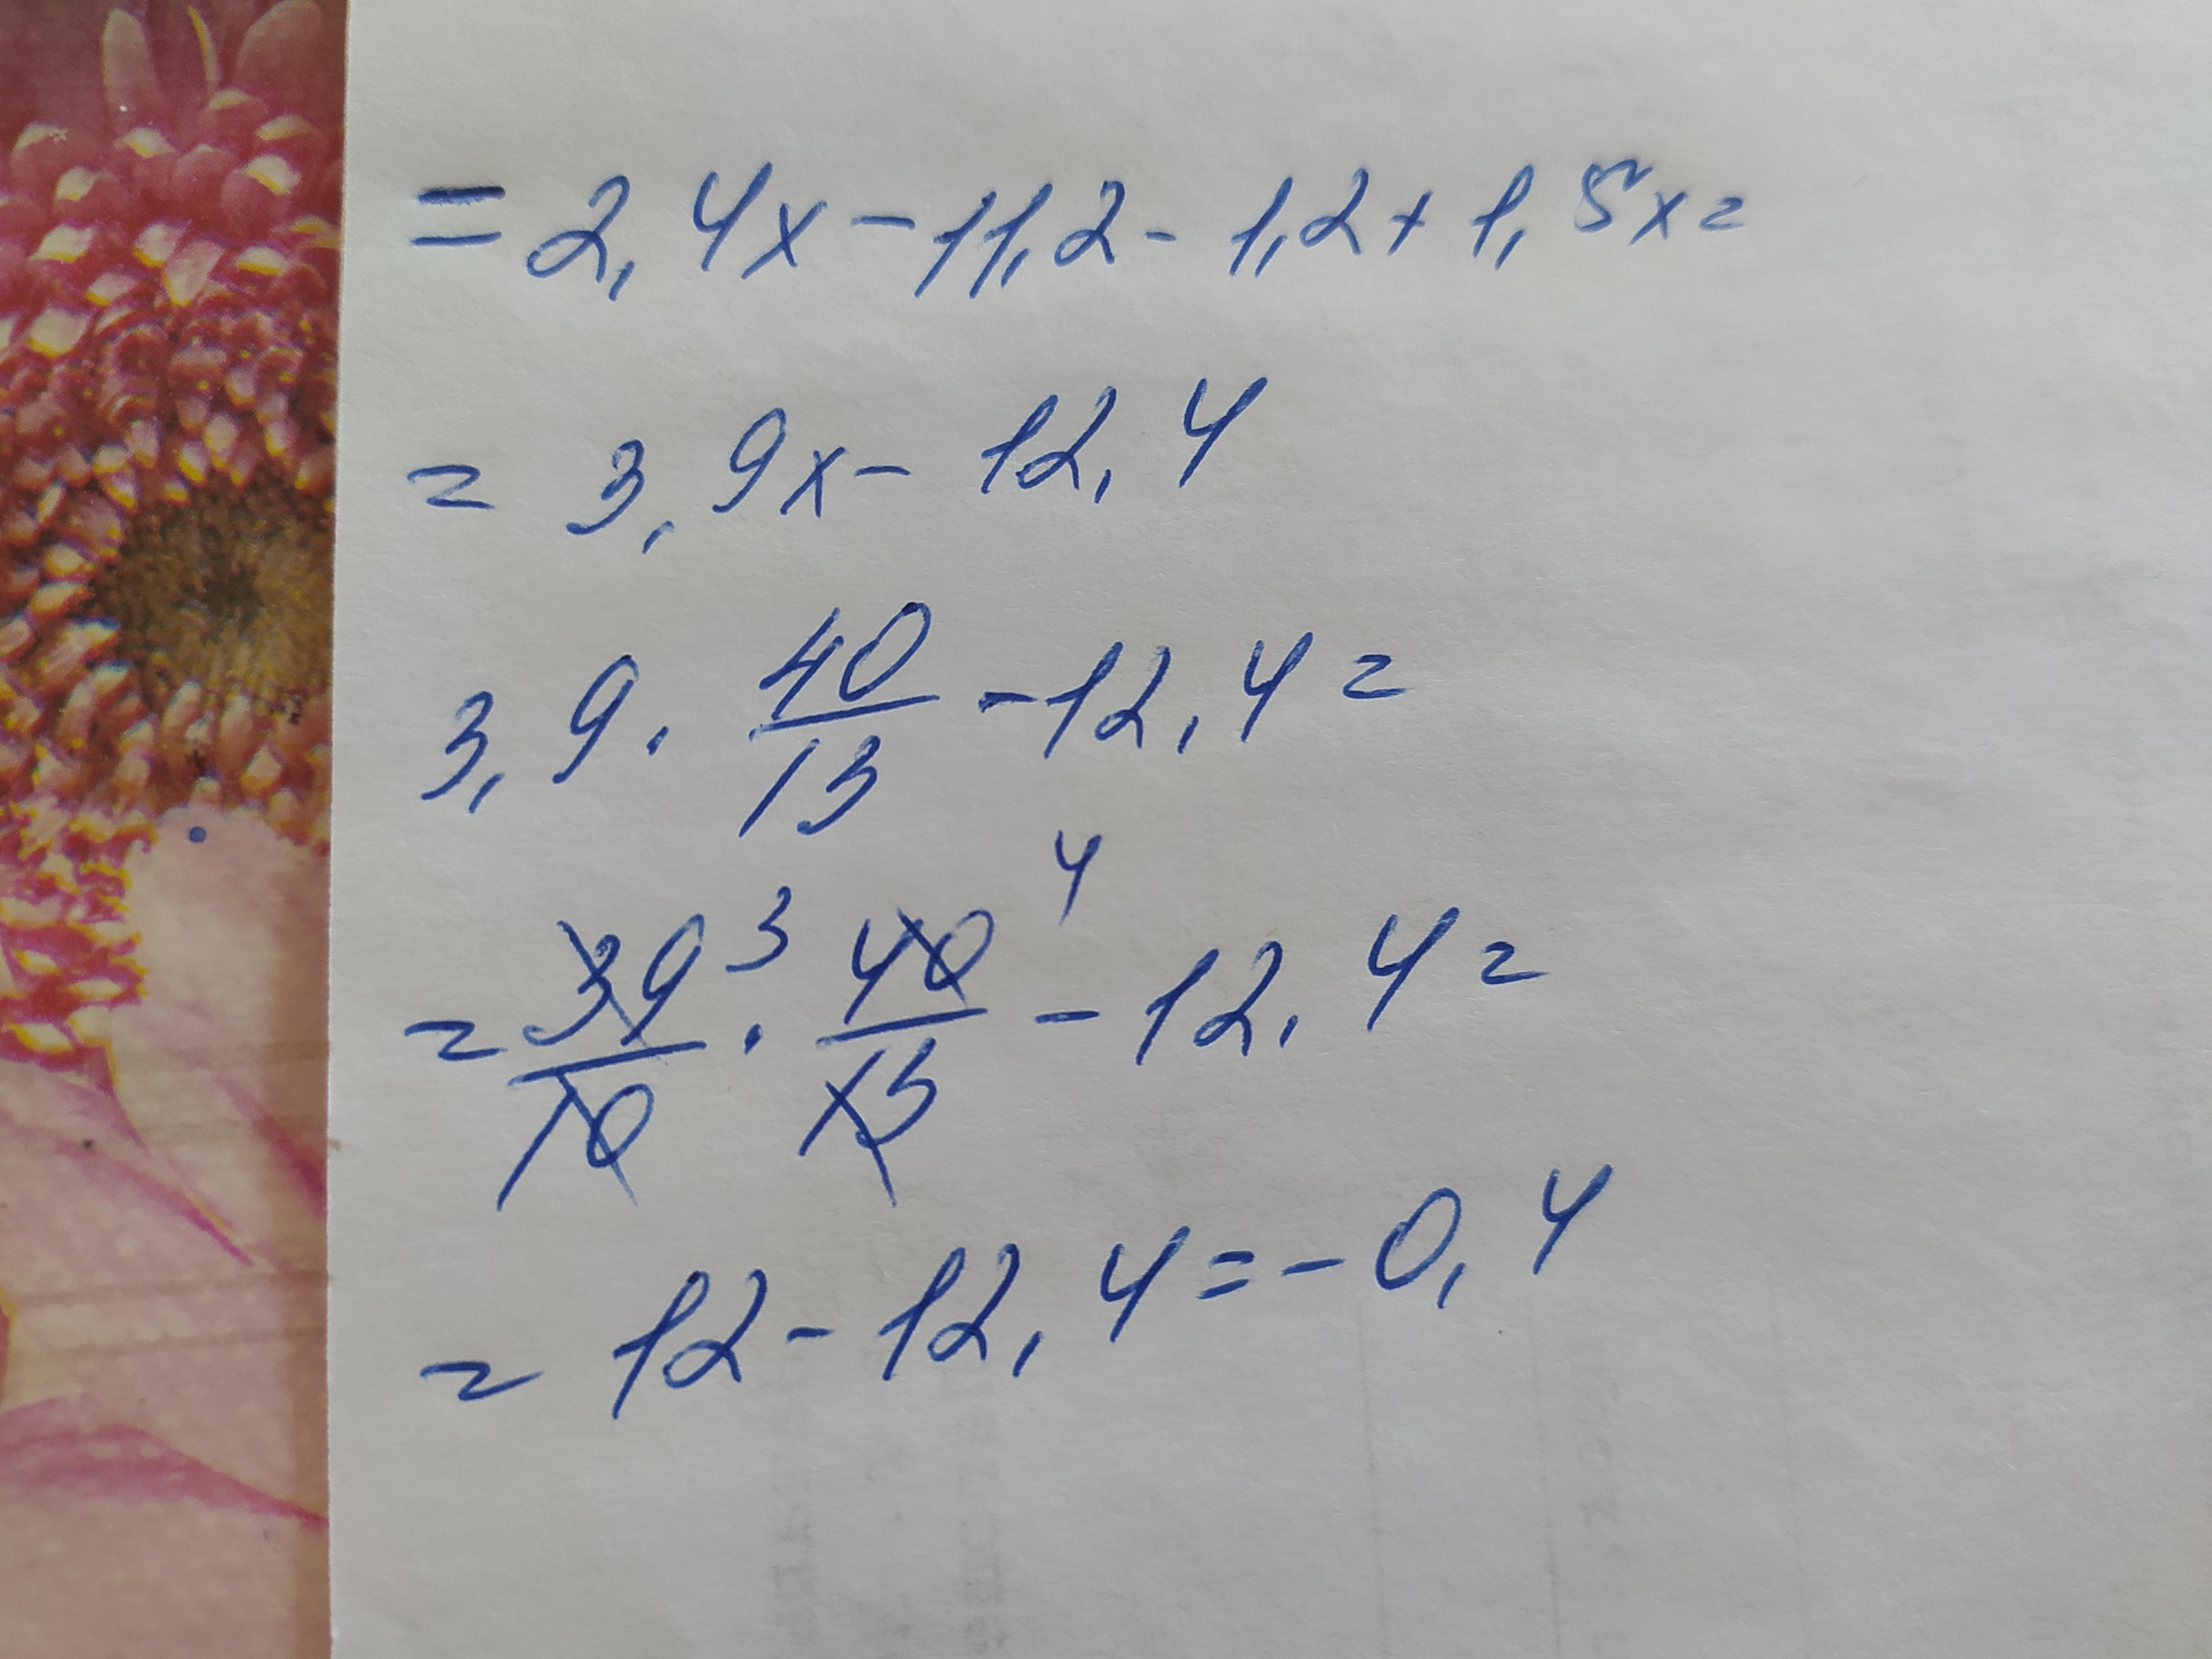 = 2,4x - 11,2 - 1,2 + 1,5x =
= 3,9x - 12,4
3,9 · 40/13 - 12,4 =
= 39/10 3 · 40/13 4 - 12,4 =
= 12 - 12,4 = - 0,4